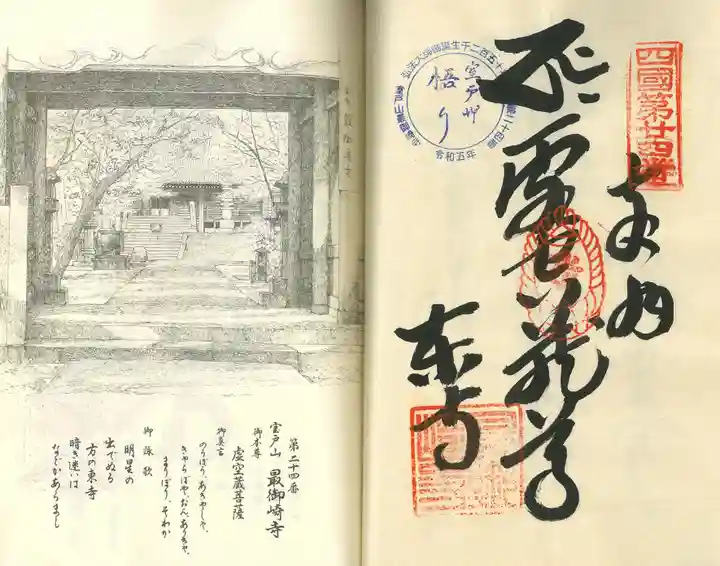 四國第廿四番
奉納
虚空蔵尊
東寺
弘法大師御誕生千二百五十年
室戸岬
悟り
令和五年
第二十四番
室戸山 最御崎寺
御本尊
虚空蔵菩薩
御真言
のうぼう、あきゃしゃ、
きゃらばや、おん、ありきゃ、
まりぼり、そわか
御詠歌
明星の
出でぬる
方の東寺
暗き迷いは
などかあらまし